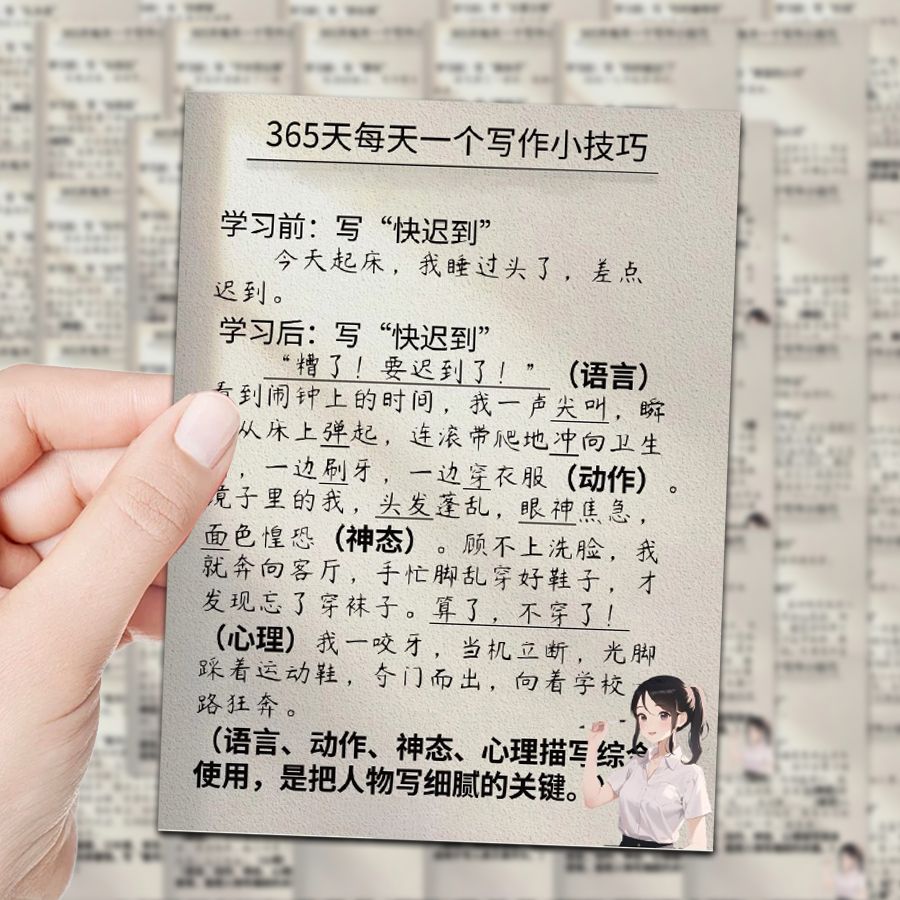 365天每天一个写作小技巧
学习前：写“快迟到”
今天起床，我睡过头了，差点
迟到。
学习后：写“快迟到”
“糟了！要迟到了！”（语言）
到闹钟上的时间，我一声尖叫，瞬
从床上弹起，连滚带爬地冲向卫生
，一边刷牙，一边穿衣服（动作）。
镜子里的我，头发蓬乱，眼神焦急，
面色惶恐（神态）。顾不上洗脸，我
就奔向客厅，手忙脚乱穿好鞋子，才
发现忘了穿袜子。算了，不穿了！
（心理）我一咬牙，当机立断，光脚
踩着运动鞋，夺门而出，向着学校
路狂奔。
（语言、动作、神态、心理描写综合
使用，是把人物写细腻的关键。）